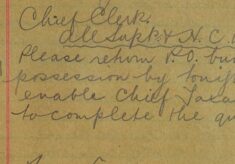 Chief Clerk.
all Sapt & N.C.
Please return P.O. bu
possession by tonig
enable Chief Taxa
to complete the qu